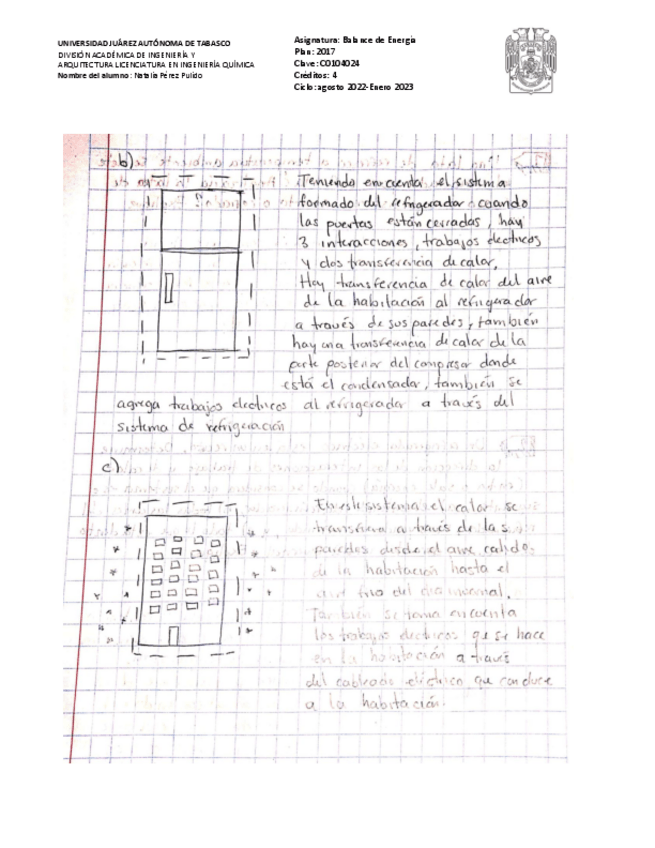 UNIVERSIDAD JUÁREZ AUTÓNOMA DE TABASCO
DIVISIÓN ACADÉMICA DE INGENIERÍA Y
ARQUITECTURA LICENCIATURA EN INGENIERÍA QUÍMICA
Nombre del alumno: Natalia Pérez Pulido
Asignatura: Balance de Energía
Plan: 2017
Clave: C0104024
Créditos: 4
Ciclo: agosto 2022-Enero 2023
b)
Teniendo en cuenta el sistema
formado del refrigerador cuando
las puertas están cerradas, hay
3 interacciones, trabajos electricos
y dos transferencia de calor,
Hay transferencia de calor del aire
de la habitación al refrigerador
a través de sus paredes, también
hay una transferencia de calor de la
parte posterior del compresor donde
está el condensador, también se
agrega trabajos electricos al refrigerador a través del
sistema de refrigeración
c)
En este sistema el calor se
transfiere a través de las
paredes desde el aire calido
de la habitación hasta el
aire frio del dia invernal.
También se toma en cuenta
los trabajos electricos que se hace
en la habitación a través
del cableado eléctrico que conduce
a la habitación.